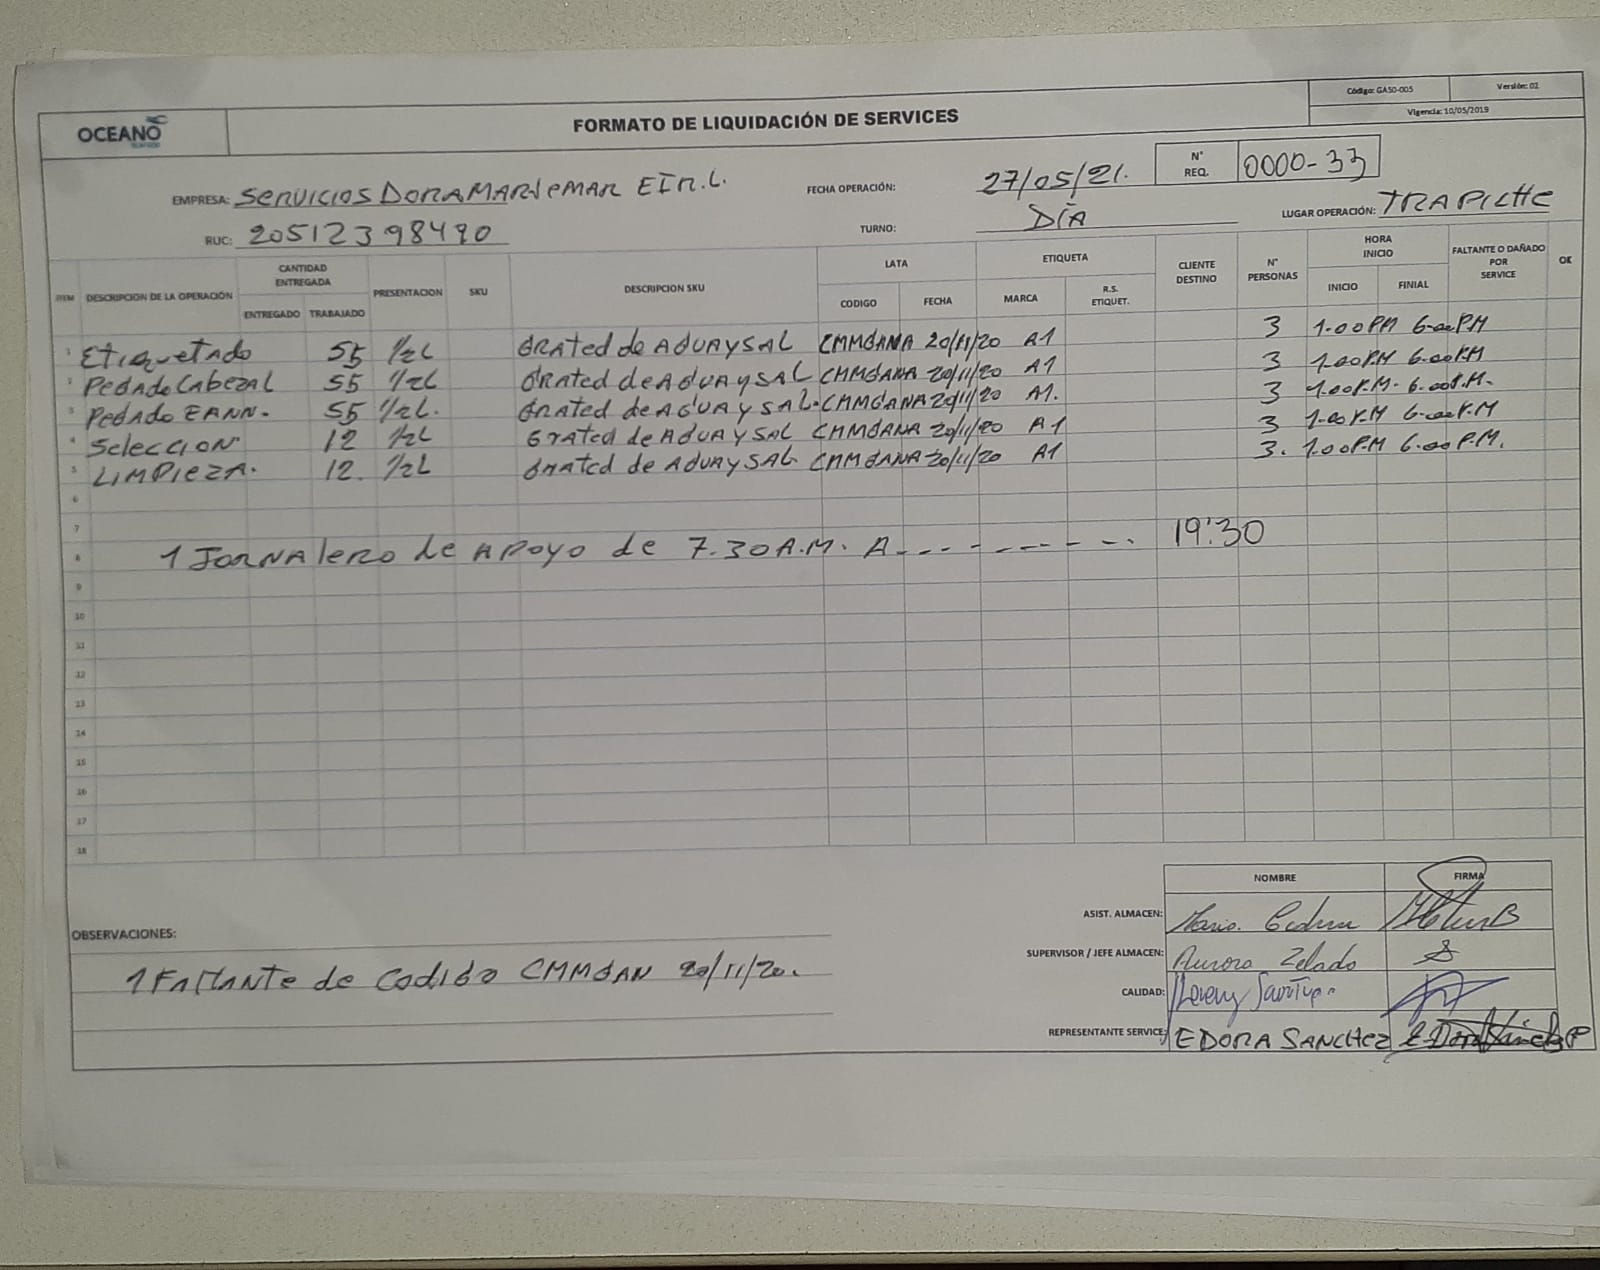 OCEANO
SEAFOOD
FORMATO DE LIQUIDACIÓN DE SERVICES
Código: GASO-005
Versión: 02
Vigencia: 10/05/2019
EMPRESA: Servicios DORAMARJEMAR EIR.L.
FECHA OPERACIÓN: 27/05/21.
N° REQ. 0000-33
RUC: 20512398490
TURNO: DÍA
LUGAR OPERACIÓN: TRAPICHE
ITEM DESCRIPCION DE LA OPERACIÓN CANTIDAD ENTREGADA PRESENTACION SKU DESCRIPCION SKU LATA ETIQUETA CLIENTE DESTINO N° PERSONAS HORA INICIO FALTANTE O DAÑADO POR SERVICE OK
ENTREGADO TRABAJADO CODIGO FECHA MARCA R.S. ETIQUET. INICIO FINIAL
1 Etiquetado 55 1/2L GRATed de AGUA Y SAL CMMGANA 20/11/20 A1 3 1.00PM 6.00P.M
2 PeGAdo CAbezAL 55 1/2L GRATed de AGUA Y SAL CMMGANA 20/11/20 A1 3 1.00PM 6.00P.M
3 PeGAdo EANN. 55 1/2L. GRATed de AGUA Y SAL. CMMGANA 20/11/20 A1. 3 1.00P.M. 6.00P.M.
4 SeleccION 12 1/2L GRATed de AGUA Y SAL CMMGANA 20/11/20 A1 3 1.00P.M 6.00P.M
5 LIMPIEZA. 12. 1/2L GRATed de AGUA Y SAL. CMMGANA 20/11/20 A1 3. 1.00P.M 6.00P.M.
6
7
8 1 JORNALERO de APOYO de 7.30A.M. A - - - - - - - - - . 19:30
9
10
11
12
13
14
15
16
17
18
NOMBRE FIRMA
ASIST. ALMACEN: Mario.
OBSERVACIONES:
SUPERVISOR / JEFE ALMACEN: Aurora Zelado
1 FALTANTE de CODIGO CMMGAN 20/11/20.
CALIDAD:
REPRESENTANTE SERVICE: EDORA SANCHEZ